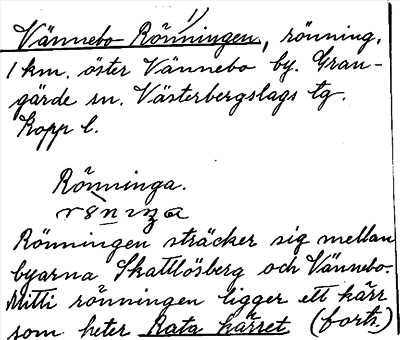 1)
Vännebo Rönningen, rönning,
1 km. öster Vännebo by. Gran-
gärde sn. Västerbergslags tg.
Kopp l.
Rönninga.
Rönningen sträcker sig mellan
byarna Skattlösberg och Vännebo.
Mitti rönningen ligger ett kärr
som heter Rata kärret (forts.)